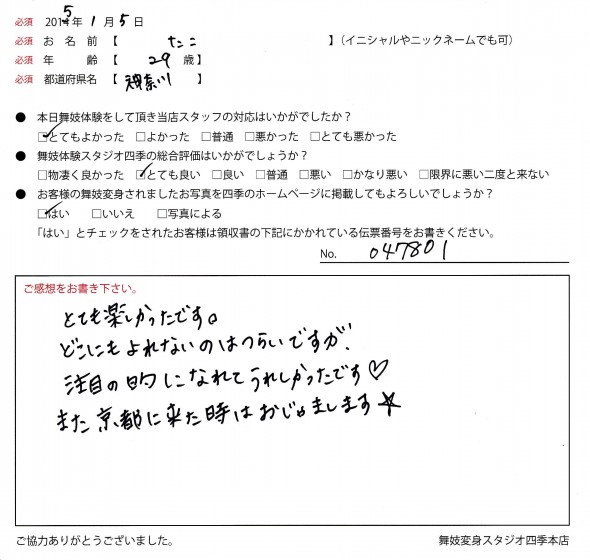 必須 2015年 1月 5日
必須 お名前【 たこ 】(イニシャルやニックネームでも可)
必須 年齢【 29 歳】
必須 都道府県名【 神奈川 】
● 本日舞妓体験をして頂き当店スタッフの対応はいかがでしたか?
☑とてもよかった □よかった □普通 □悪かった □とても悪かった
● 舞妓体験スタジオ四季の総合評価はいかがでしょうか?
□物凄く良かった ☑とても良い □良い □普通 □悪い □かなり悪い □限界に悪い二度と来ない
● お客様の舞妓変身されましたお写真を四季のホームページに掲載してもよろしいでしょうか?
☑はい □いいえ □写真による
「はい」とチェックをされたお客様は領収書の下記にかかれている伝票番号をお書きください。
No. 047801
ご感想をお書き下さい。
とても楽しかったです。
どこにもよれないのはつらいですが、
注目の的になれてうれしかったです♡
また京都に来た時はおじゃまします☆
ご協力ありがとうございました。 舞妓変身スタジオ四季本店